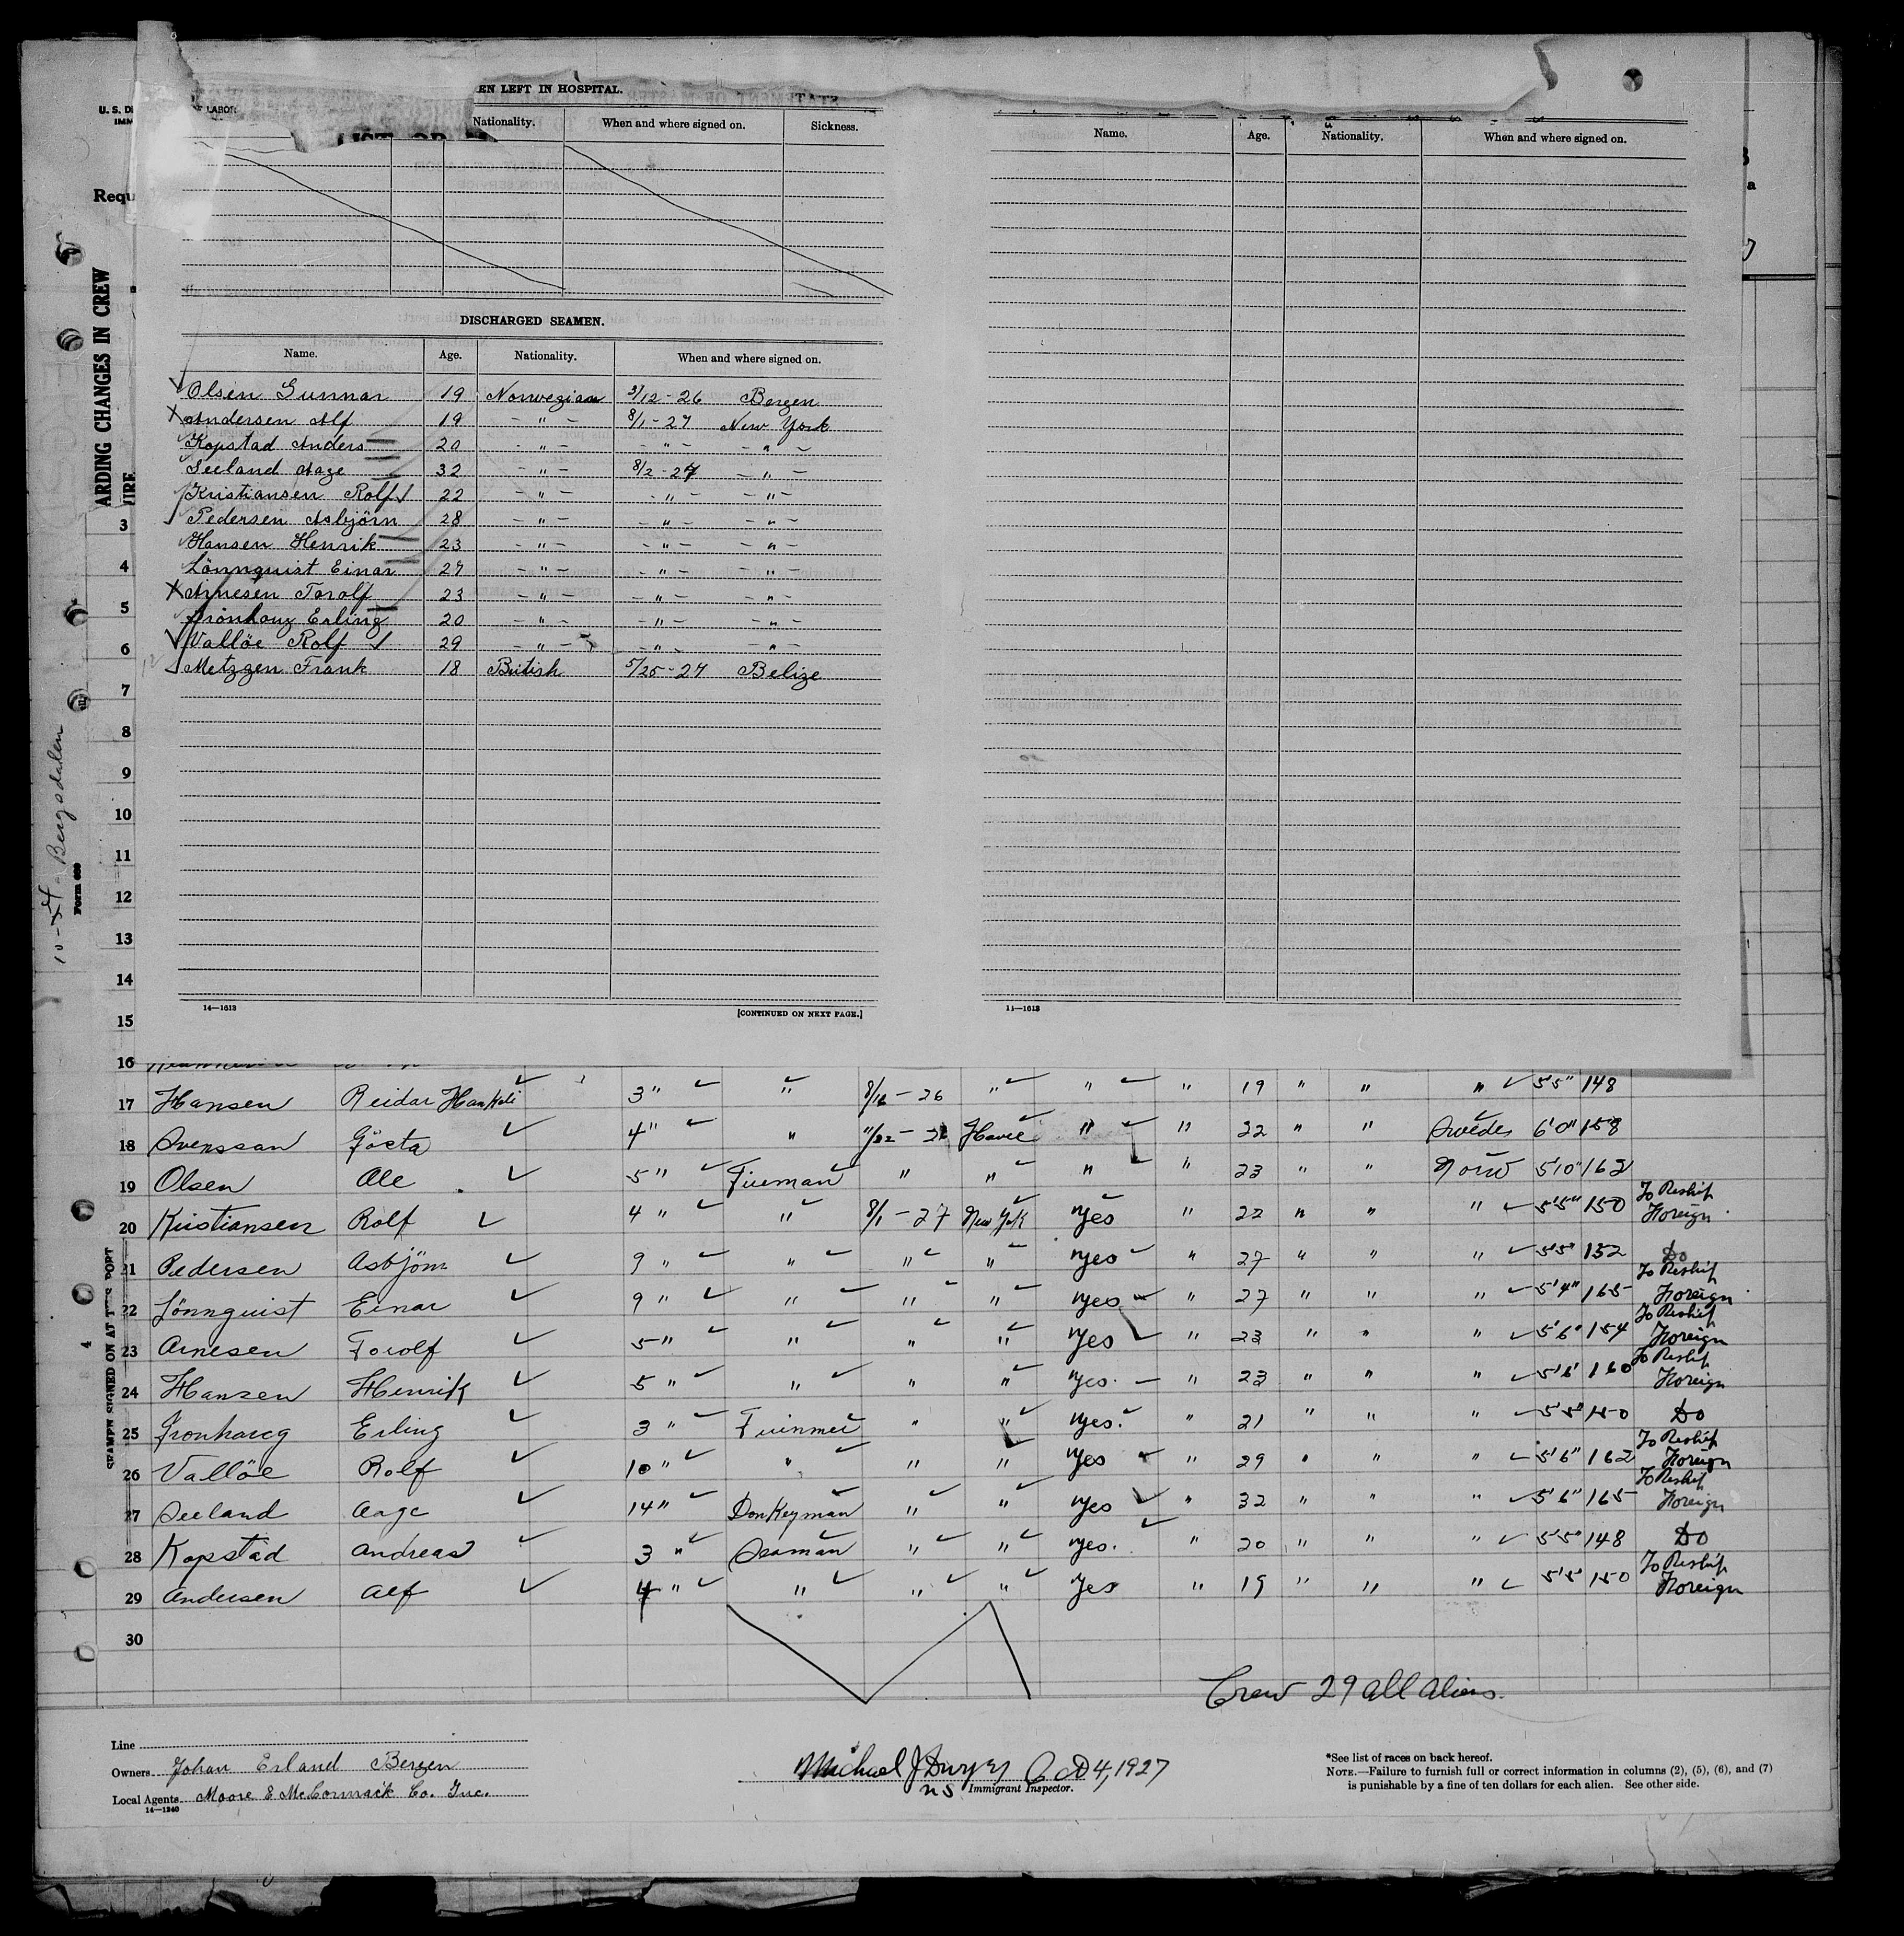 U. S. DE
OF LABOR
IMM
LIST OR
Requ
EN LEFT IN HOSPITAL.
Nationality. When and where signed on. Sickness.
DISCHARGED SEAMEN.
Name. Age. Nationality. When and where signed on.
Olsen Gunnar 19 Norwegian 3/12-26 Bergen
Andersen Alf 19 -"- 8/1-27 New York
Kopstad Anders 20 -"- -"- -"-
Seeland Aage 32 -"- 8/2-27 -"-
Kristiansen Rolf 22 -"- -"- -"-
Pedersen Asbjörn 28 -"- -"- -"-
Hansen Henrik 23 -"- -"- -"-
Lönnquist Einar 27 -"- -"- -"-
Arnesen Torolf 23 -"- -"- -"-
Erling 20 -"- -"- -"-
Vallöe Rolf 29 -"- -"- -"-
Metzgen Frank 18 British 5/25-27 Belize
14—1613 [CONTINUED ON NEXT PAGE.]
Name. Age. Nationality. When and where signed on.
14—1613
ARDING CHANGES IN CREW
Bergsdalen
Form 689
SEAMEN SIGNED ON AT THIS PORT
3
4
5
6
7
8
9
10
11
12
13
14
15
16
17 Hansen Reidar 3 " " 8/16-26 " " " 19 " " " 5'5" 148
18 Svenssan Gösta 4 " " Havre " " 22 " " Swedes 6'0" 158
19 Olsen Ole 5 " Fireman " " " " 23 " " Norw 5'10" 162
20 Kristiansen Rolf 4 " " 8/1-27 New York Yes " 22 " " " 5'5" 150 To Reship Foreign
21 Pedersen Asbjörn 9 " " " " Yes " 27 " " " 5'5" 152 Do
22 Lönnquist Einar 9 " " " " Yes " 27 " " " 5'4" 165 To Reship Foreign
23 Arnesen Torolf 5 " " " " Yes " 23 " " " 5'6" 154 To Reship Foreign
24 Hansen Henrik 5 " " " " Yes. " 23 " " " 5'6" 160 To Reship Foreign
25 Erling 3 " " " Yes. " 21 " " " 5'5" 150 Do
26 Vallöe Rolf 10 " " " " Yes " 29 " " " 5'6" 162 To Reship Foreign
27 Seeland Aage 14 " Donkeyman " " Yes " 32 " " " 5'6" 165 To Reship Foreign
28 Kopstad Andreas 3 " Seaman " " Yes. " 20 " " " 5'5" 148 Do
29 Andersen Alf 4 " " " " Yes " 19 " " " 5'5" 150 To Reship Foreign
30
Crew 29 all aliens.
Line
Owners Johan Erland Bergen
Local Agents Moore & McCormack Co. Inc.
14—1240
Michael J Dwyer Oct 4, 1927
Immigrant Inspector.
*See list of races on back hereof.
NOTE.—Failure to furnish full or correct information in columns (2), (5), (6), and (7)
is punishable by a fine of ten dollars for each alien. See other side.